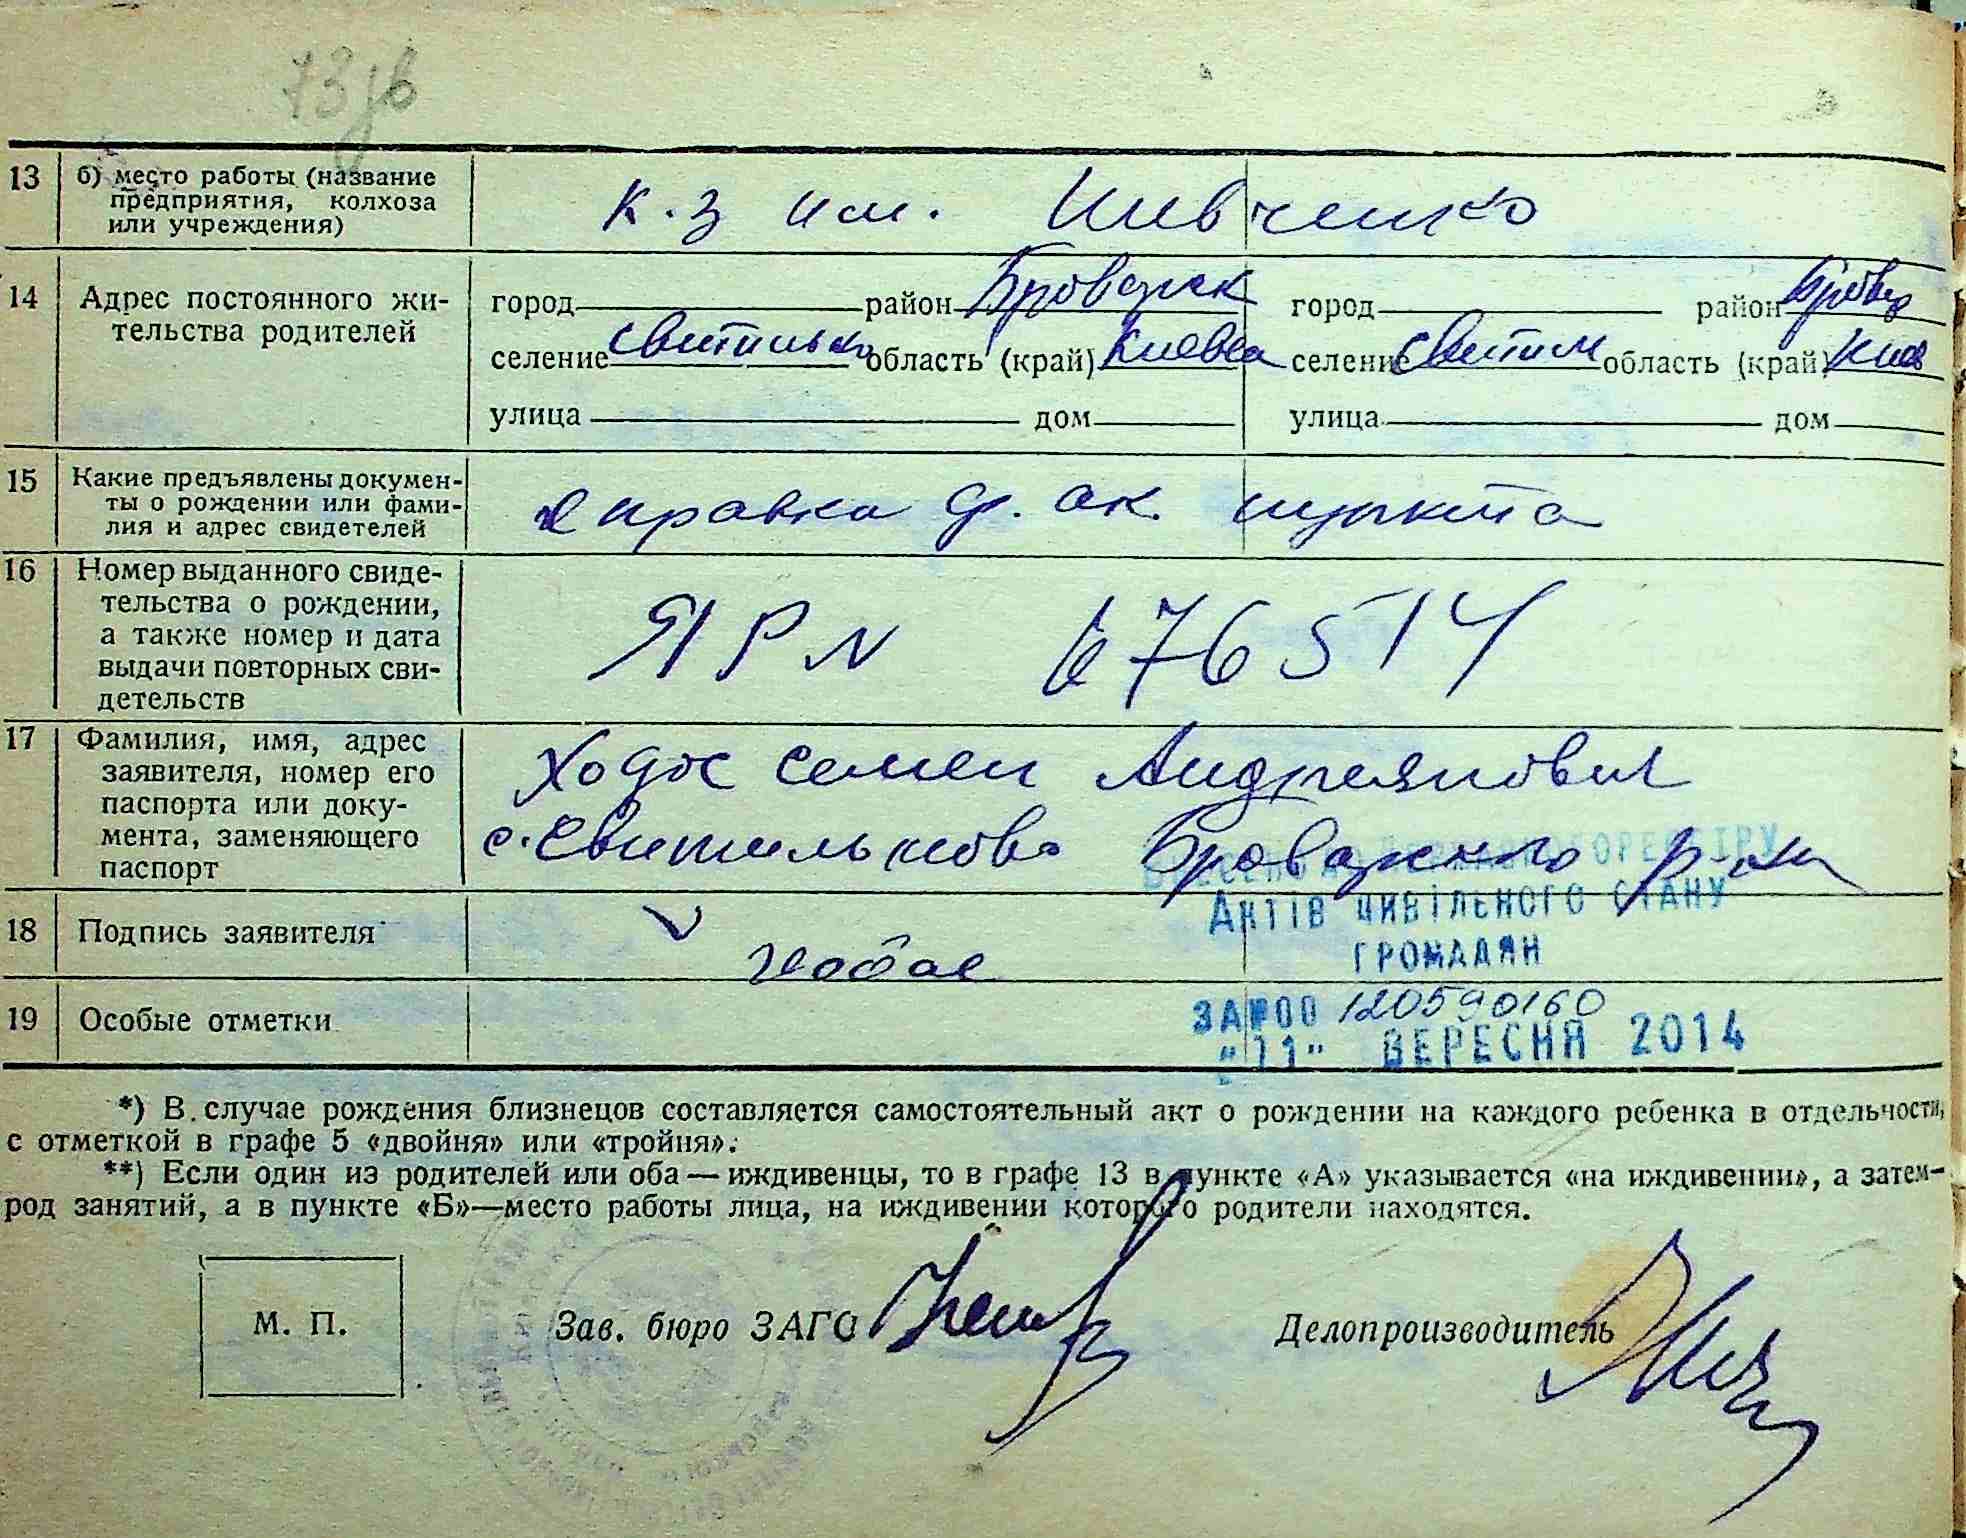 73
13 б) место работы (название предприятия, колхоза или учреждения) к.з им. Шевченко
14 Адрес постоянного жительства родителей
город район Броварск город район Бровар
селение Свитильно область (край) Киевск селение Свитил область (край) Киев
улица дом улица дом
15 Какие предъявлены документы о рождении или фамилия и адрес свидетелей справка ф. ак. пункта
16 Номер выданного свидетельства о рождении, а также номер и дата выдачи повторных свидетельств ЯР N 676514
17 Фамилия, имя, адрес заявителя, номер его паспорта или документа, заменяющего паспорт Ходос Семен Андреянович
с. Свитильново Броварского р-на
ДЕРЖАВНОГО РЕЄСТРУ
АКТІВ ЦИВІЛЬНОГО СТАНУ
18 Подпись заявителя
ГРОМАДЯН
19 Особые отметки
ЗА №00 120590160
"11" ВЕРЕСНЯ 2014
*) В случае рождения близнецов составляется самостоятельный акт о рождении на каждого ребенка в отдельности,
с отметкой в графе 5 «двойня» или «тройня».
**) Если один из родителей или оба — иждивенцы, то в графе 13 в пункте «А» указывается «на иждивении», а затем—
род занятий, а в пункте «Б»—место работы лица, на иждивении которого родители находятся.
М. П. Зав. бюро ЗАГС Делопроизводитель